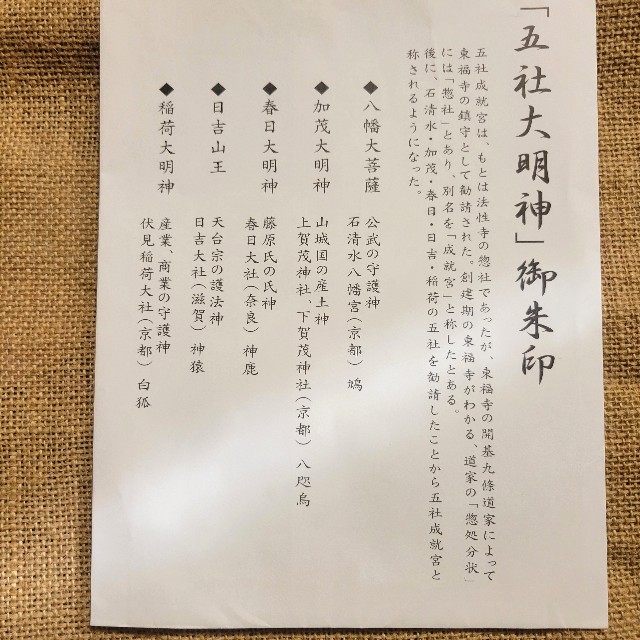 「五社大明神」御朱印
五社成就宮は、もとは法性寺の惣社であったが、東福寺の開基九條道家によって
東福寺の鎮守として勧請された。創建期の東福寺がわかる、道家の「惣処分状」
には「惣社」とあり、別名を「成就宮」と称したとある。
後に、石清水・加茂・春日・日吉・稲荷の五社を勧請したことから五社成就宮と
称されるようになった。
◆八幡大菩薩 公武の守護神
石清水八幡宮(京都)鳩
◆加茂大明神 山城国の産土神
上賀茂神社、下賀茂神社(京都)八咫烏
◆春日大明神 藤原氏の氏神
春日大社(奈良)神鹿
◆日吉山王 天台宗の護法神
日吉大社(滋賀)神猿
◆稲荷大明神 産業、商業の守護神
伏見稲荷大社(京都)白狐